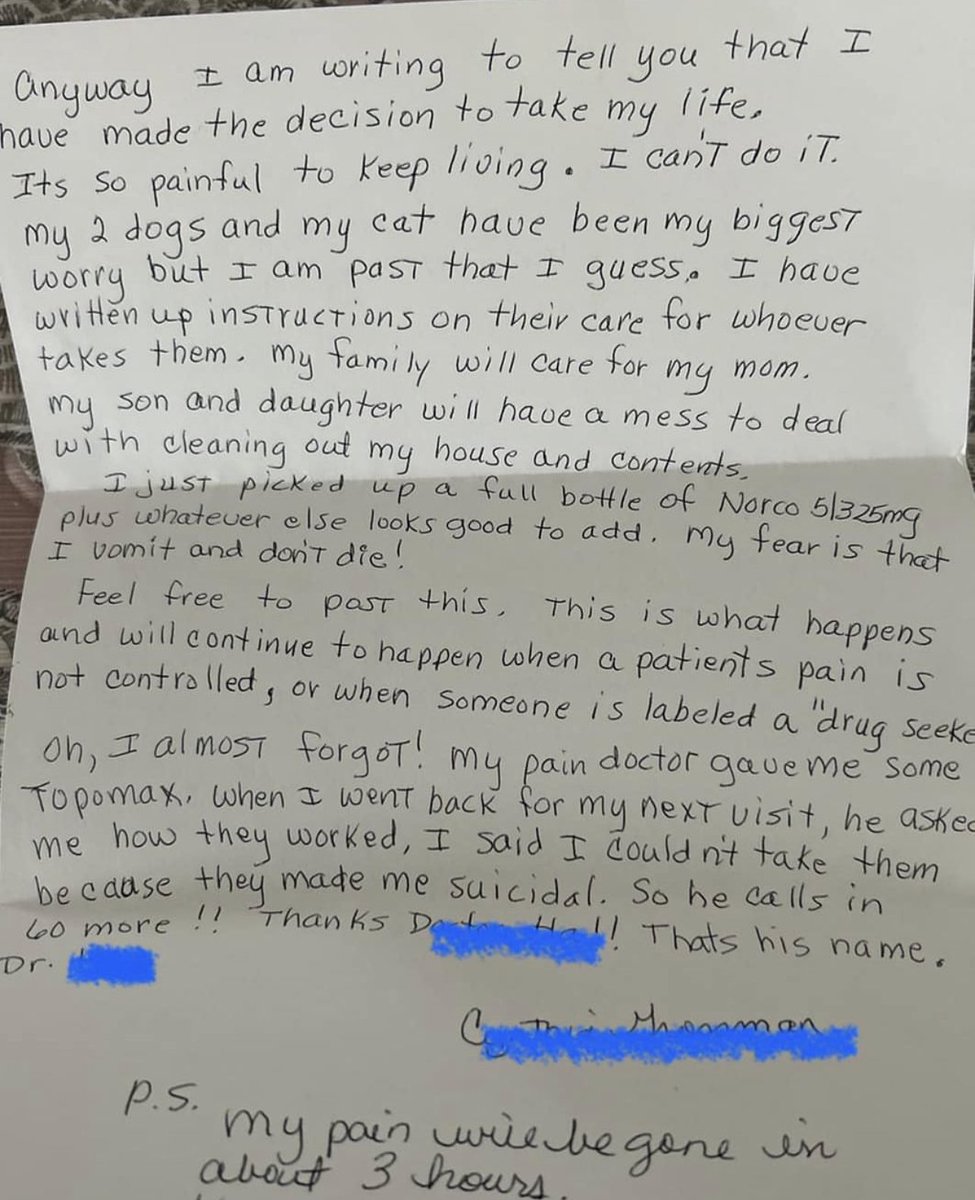 Anyway I am writing to tell you that I
have made the decision to take my life.
Its so painful to keep living. I can't do it.
my 2 dogs and my cat have been my biggest
worry but I am past that I guess. I have
written up instructions on their care for whoever
takes them. my family will care for my mom.
my son and daughter will have a mess to deal
with cleaning out my house and contents.
I just picked up a full bottle of Norco 5/325mg
plus whatever else looks good to add. My fear is that
I vomit and don't die!
Feel free to post this. This is what happens
and will continue to happen when a patients pain is
not controlled, or when someone is labeled a "drug seeke
Oh, I almost forgot! My pain doctor gave me some
Topomax. When I went back for my next visit, he asked
me how they worked, I said I couldn't take them
because they made me suicidal. So he calls in
60 more!! Thanks !! Thats his name.
Dr.
P.S.
my pain will be gone in
about 3 hours.